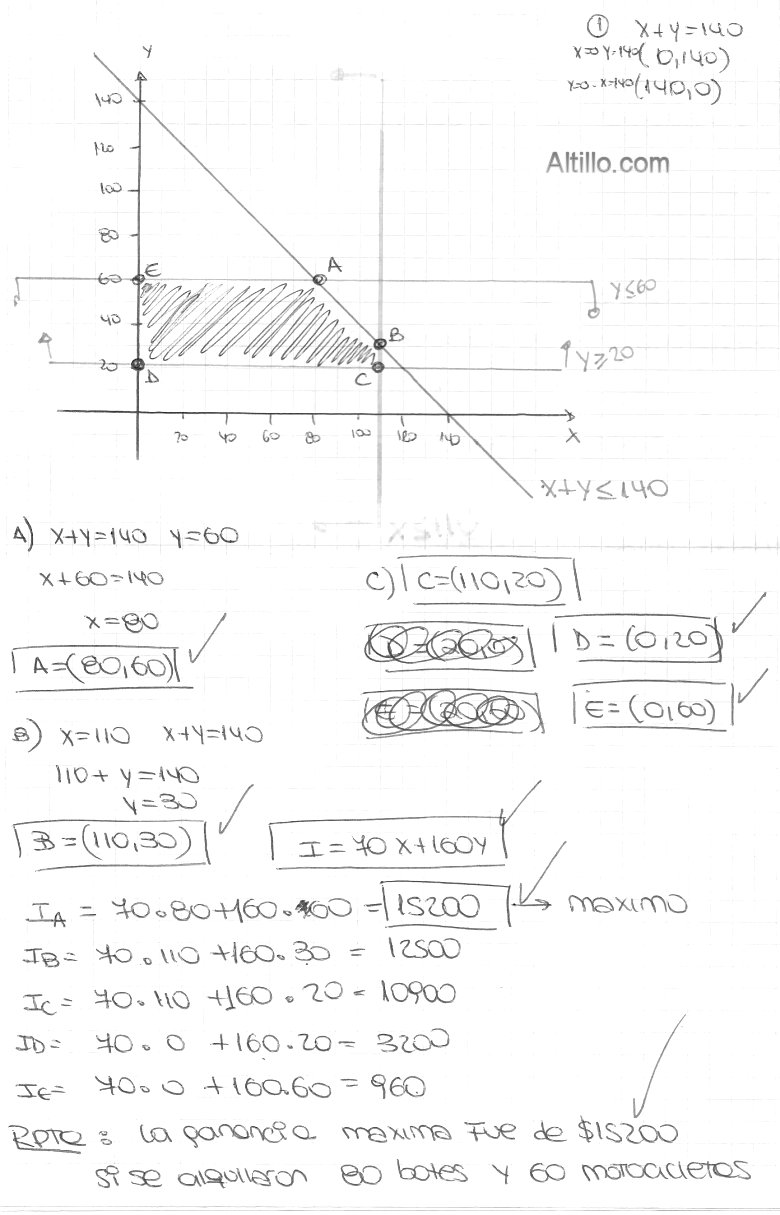 ① X+Y=140
X=0 Y=140 (0,140)
Y=0 - X=140 (140,0)
Altillo.com
Y
140
120
100
80
60
40
20
E
A
B
D
C
Y≤60
Y≥20
20 40 60 80 100 120 140
X
X+Y≤140
A) X+Y=140 Y=60
X+60=140
X=80
A=(80,60)
B) X=110 X+Y=140
110+Y=140
Y=30
B=(110,30)
C) C=(110,20)
D=(0,20)
E=(0,60)
I=70X+160Y
IA = 70.80+160.60 = 15200 → maximo
IB= 70.110 +160.30 = 12500
IC= 70.110 +160.20 = 10900
ID= 70.0 +160.20= 3200
IE= 70.0 +160.60=960
RPTA: la ganancia maxima fue de $15200
si se alquilaron 80 botes y 60 motocicletas